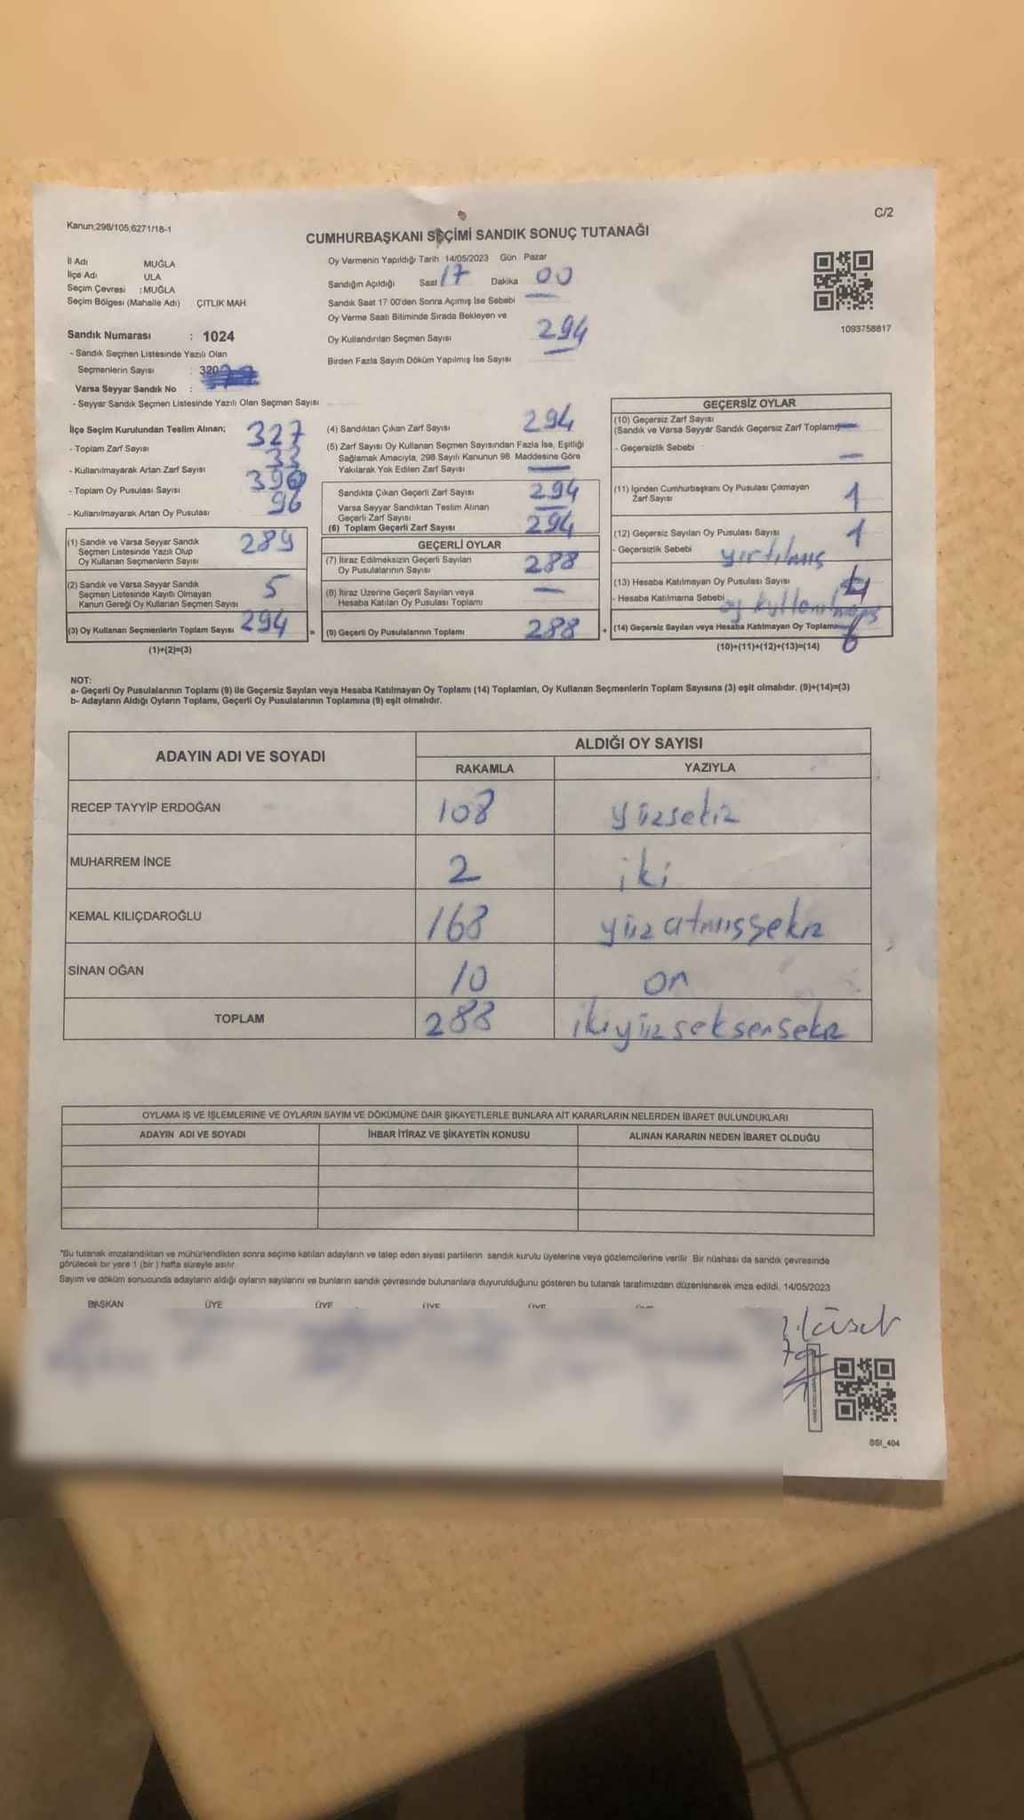 Kanun;298/105,6271/18-1
C/2
CUMHURBAŞKANI SEÇİMİ SANDIK SONUÇ TUTANAĞI
İl Adı MUĞLA
İlçe Adı ULA
Seçim Çevresi : MUĞLA
Seçim Bölgesi (Mahalle Adı) ÇITLIK MAH.
Sandık Numarası : 1024
- Sandık Seçmen Listesinde Yazılı Olan
Seçmenlerin Sayısı : 320
Varsa Seyyar Sandık No :
- Seyyar Sandık Seçmen Listesinde Yazılı Olan Seçmen Sayısı
Oy Vermenin Yapıldığı Tarih 14/05/2023 Gün Pazar
Sandığın Açıldığı Saat 17 Dakika 00
Sandık Saat 17:00'den Sonra Açımış İse Sebebi —
Oy Verme Saati Bitiminde Sırada Bekleyen ve
Oy Kullandırılan Seçmen Sayısı 294
Birden Fazla Sayım Döküm Yapılmış İse Sayısı —
1093758817
İlçe Seçim Kurulundan Teslim Alınan;
- Toplam Zarf Sayısı 327
- Kullanılmayarak Artan Zarf Sayısı 33
- Toplam Oy Pusulası Sayısı 390
- Kullanılmayarak Artan Oy Pusulası 96
(1) Sandık ve Varsa Seyyar Sandık
Seçmen Listesinde Yazılı Olup
Oy Kullanan Seçmenlerin Sayısı 289
(2) Sandık ve Varsa Seyyar Sandık
Seçmen Listesinde Kayıtlı Olmayan
Kanun Gereği Oy Kullanan Seçmen Sayısı 5
(3) Oy Kullanan Seçmenlerin Toplam Sayısı 294
(1)+(2)=(3)
(4) Sandıktan Çıkan Zarf Sayısı 294
(5) Zarf Sayısı Oy Kullanan Seçmen Sayısından Fazla İse, Eşitliği
Sağlamak Amacıyla, 298 Sayılı Kanunun 98. Maddesine Göre
Yakılarak Yok Edilen Zarf Sayısı —
Sandıkta Çıkan Geçerli Zarf Sayısı 294
Varsa Seyyar Sandıktan Teslim Alınan
Geçerli Zarf Sayısı —
(6) Toplam Geçerli Zarf Sayısı 294
GEÇERLİ OYLAR
(7) İtiraz Edilmeksizin Geçerli Sayılan
Oy Pusulalarının Sayısı 288
(8) İtiraz Üzerine Geçerli Sayılan veya
Hesaba Katılan Oy Pusulası Toplamı —
= (9) Geçerli Oy Pusulalarının Toplamı 288 +
GEÇERSİZ OYLAR
(10) Geçersiz Zarf Sayısı
(Sandık ve Varsa Seyyar Sandık Geçersiz Zarf Toplamı) —
- Geçersizlik Sebebi —
(11) İçinden Cumhurbaşkanı Oy Pusulası Çıkmayan
Zarf Sayısı 1
(12) Geçersiz Sayılan Oy Pusulası Sayısı 1
- Geçersizlik Sebebi yırtılmış
(13) Hesaba Katılmayan Oy Pusulası Sayısı 4
- Hesaba Katılmama Sebebi oy
(14) Geçersiz Sayılan veya Hesaba Katılmayan Oy Toplamı 6
(10)+(11)+(12)+(13)=(14)
NOT:
a- Geçerli Oy Pusulalarının Toplamı (9) ile Geçersiz Sayılan veya Hesaba Katılmayan Oy Toplamı (14) Toplamları, Oy Kullanan Seçmenlerin Toplam Sayısına (3) eşit olmalıdır. (9)+(14)=(3)
b- Adayların Aldığı Oyların Toplamı, Geçerli Oy Pusulalarının Toplamına (9) eşit olmalıdır.
ADAYIN ADI VE SOYADI ALDIĞI OY SAYISI
RAKAMLA YAZIYLA
RECEP TAYYİP ERDOĞAN 108 yüzsekiz
MUHARREM İNCE 2 iki
KEMAL KILIÇDAROĞLU 168 yüzatmışsekiz
SİNAN OĞAN 10 on
TOPLAM 288 ikiyüzseksensekiz
OYLAMA İŞ VE İŞLEMLERİNE VE OYLARIN SAYIM VE DÖKÜMÜNE DAİR ŞİKAYETLERLE BUNLARA AİT KARARLARIN NELERDEN İBARET BULUNDUKLARI
ADAYIN ADI VE SOYADI İHBAR İTİRAZ VE ŞİKAYETİN KONUSU ALINAN KARARIN NEDEN İBARET OLDUĞU
*Bu tutanak imzalandıktan ve mühürlendikten sonra seçime katılan adayların ve talep eden siyasi partilerin sandık kurulu üyelerine veya gözlemcilerine verilir. Bir nüshası da sandık çevresinde
görülecek bir yere 1 (bir ) hafta süreyle asılır.
Sayım ve döküm sonucunda adayların aldığı oyların sayılarını ve bunların sandık çevresinde bulunanlara duyurulduğunu gösteren bu tutanak tarafımızdan düzenlenerek imza edildi. 14/05/2023
BAŞKAN ÜYE ÜYE ÜYE ÜYE
BSI_404